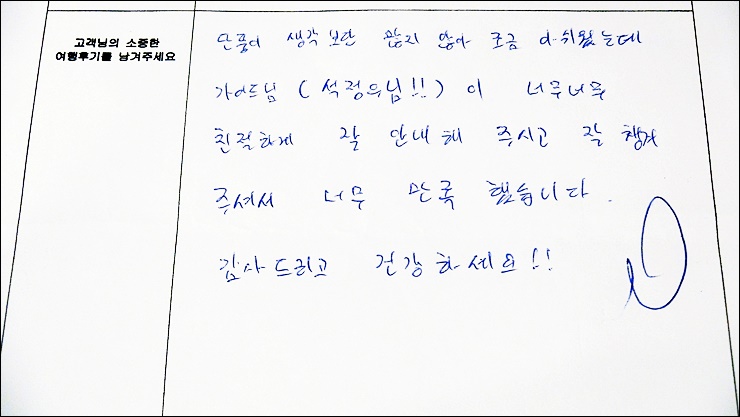 고객님의 소중한
여행후기를 남겨주세요
단풍이 생각 보단 많지 않아 조금 아쉬웠는데
가이드님 (석정우님!!) 이 너무너무
친절하게 잘 안내해 주시고 잘 챙겨
주셔서 너무 만족 했습니다.
감사드리고 건강하세요!!